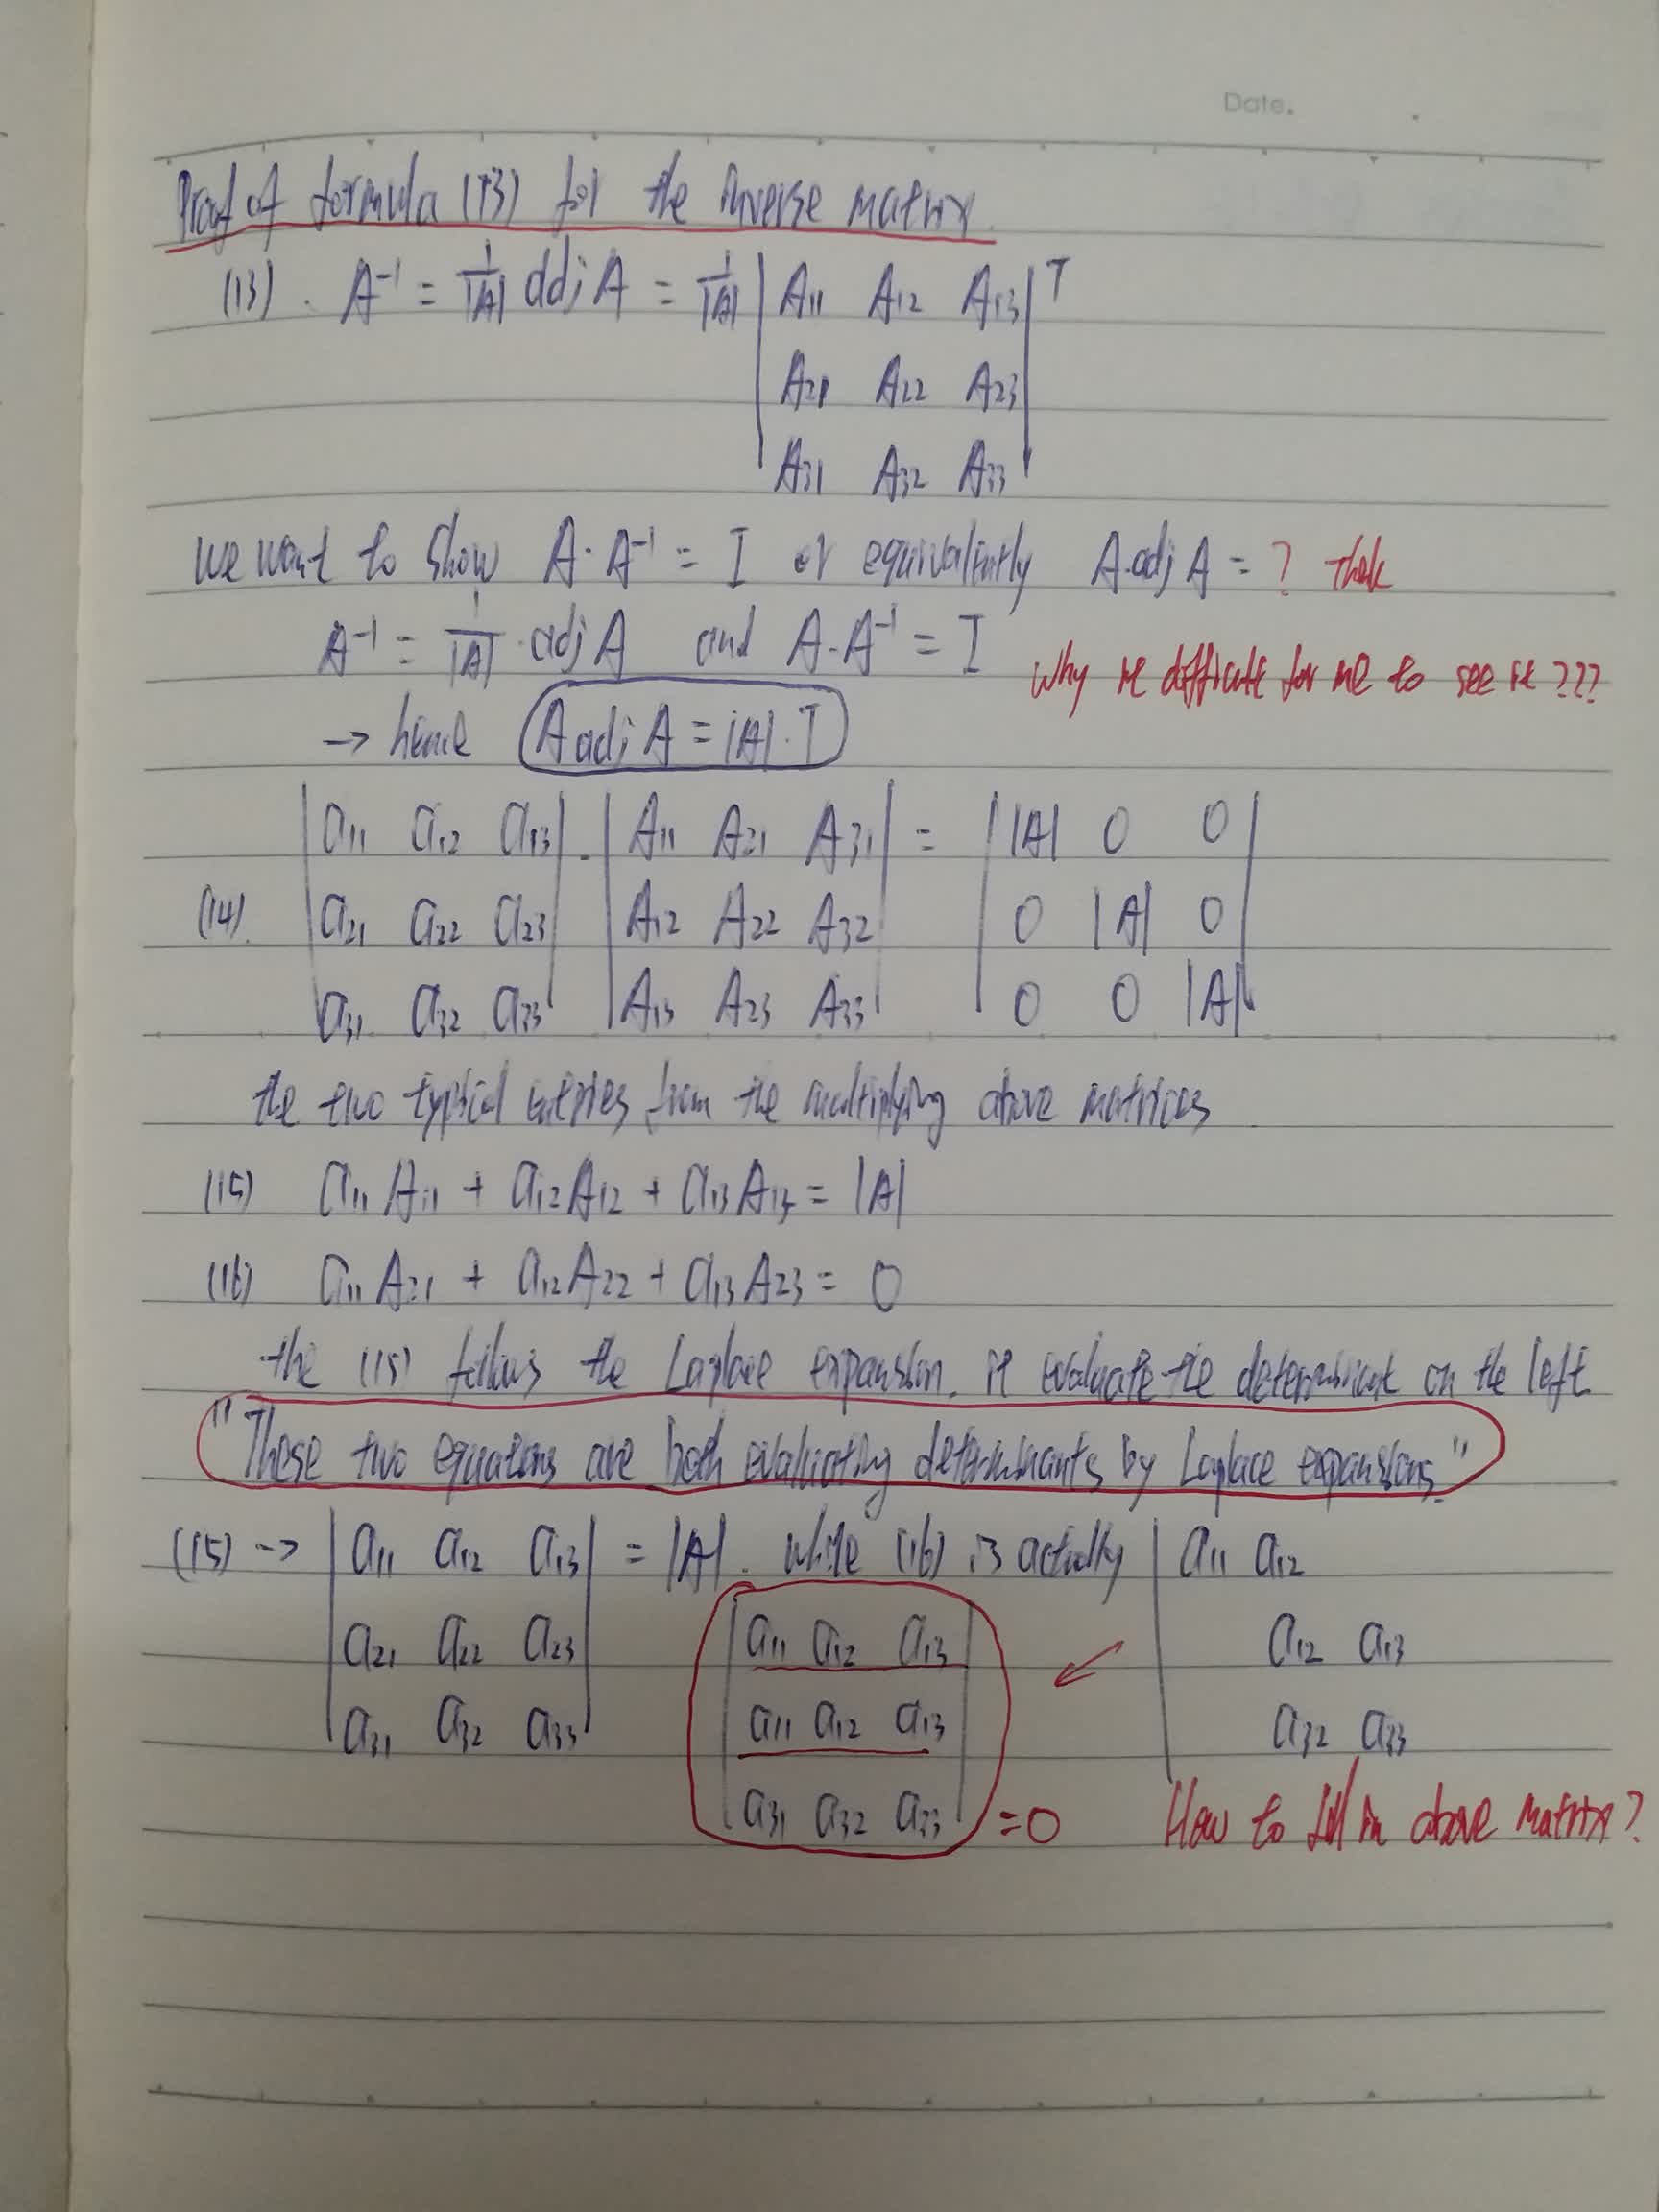 Date.
Proof of formula (13) for the inverse matrix.
(13). A⁻¹ = 1/|A| adj A = 1/|A| | A₁₁ A₁₂ A₁₃ | T
A₂₁ A₂₂ A₂₃
A₃₁ A₃₂ A₃₃
we want to show A·A⁻¹ = I or equivalently A·adj A = ?
A⁻¹ = 1/|A| · adj A and A·A⁻¹ = I Why it difficult for me to see it ???
→ hence A adj A = |A|·I
| a₁₁ a₁₂ a₁₃ | · | A₁₁ A₂₁ A₃₁ | = | |A| 0 0 |
(14). a₂₁ a₂₂ a₂₃ A₁₂ A₂₂ A₃₂ 0 |A| 0
a₃₁ a₃₂ a₃₃ A₁₃ A₂₃ A₃₃ 0 0 |A|
the two typical entries from the multiplying above matrices
(15) a₁₁A₁₁ + a₁₂A₁₂ + a₁₃A₁₃ = |A|
(16) a₁₁A₂₁ + a₁₂A₂₂ + a₁₃A₂₃ = 0
the (15) follows the Laplace expansion. it evaluate the determinant on the left
"These two equations are both evaluating determinants by Laplace expansions."
(15) → | a₁₁ a₁₂ a₁₃ | = |A|. while (16) is actually | a₁₁ a₁₂
a₂₁ a₂₂ a₂₃ a₁₁ a₁₂ a₁₃ ← a₁₂ a₁₃
a₃₁ a₃₂ a₃₃ a₁₁ a₁₂ a₁₃ a₃₂ a₃₃
a₃₁ a₃₂ a₃₃ = 0 How to fill in above matrix?